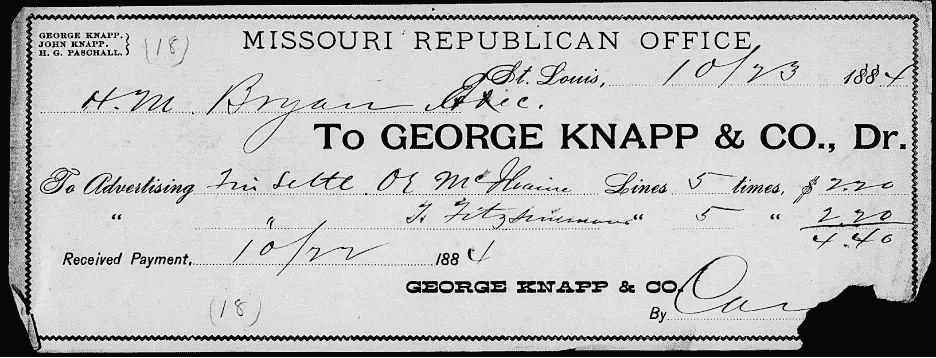 GEORGE KNAPP.
JOHN KNAPP.
H. G. PASCHALL.
(18)
MISSOURI REPUBLICAN OFFICE
St. Louis, 10/23 1884
H. M. Bryan
To GEORGE KNAPP & CO., Dr.
To Advertising Fin Settl. Lines 5 times, $ 2.20
" " " 5 " 2.20
4.40
Received Payment, 10/22 1884
GEORGE KNAPP & CO.
(18)
By